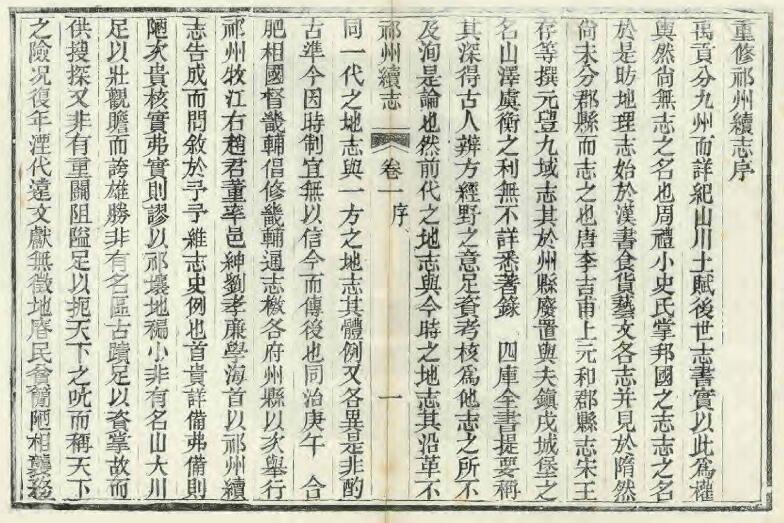 重修祁州續志序
禹貢分九州而詳紀山川土賦後世志書實以此為權
輿然尙無志之名也周禮小史氏掌邦國之志志之名
於是昉地理志始於漢書食貨藝文各志并見於隋然
尙未分郡縣而志之也唐李吉甫上元和郡縣志宋王
存等撰元豐九域志其於州縣廢置與夫鎭戍城堡之
名山澤虞衡之利無不詳悉著錄 四庫全書提要稱
其深得古人辨方經野之意足資考核為他志之所不
及洵是論也然前代之地志與今時之地志其沿革不
祁州續志 卷一 序 一
同一代之地志與一方之地志其體例又各異是非酌
古準今因時制宜無以信今而傳後也同治庚午 合
肥相國督畿輔倡修畿輔通志檄各府州縣以次舉行
祁州牧江右趙君董率邑紳劉孝廉學海首以祁州續
志告成而問敘於予予維志史例也首貴詳備弗備則
陋次貴核實弗實則謬以祁壤地褊小非有名山大川
足以壯觀瞻而誇雄勝非有名區古蹟足以資掌故而
供搜探又非有重關阻隘足以扼天下之吭而稱天下
之險况復年湮代遠文獻無徵地瘠民貧簡陋相襲務